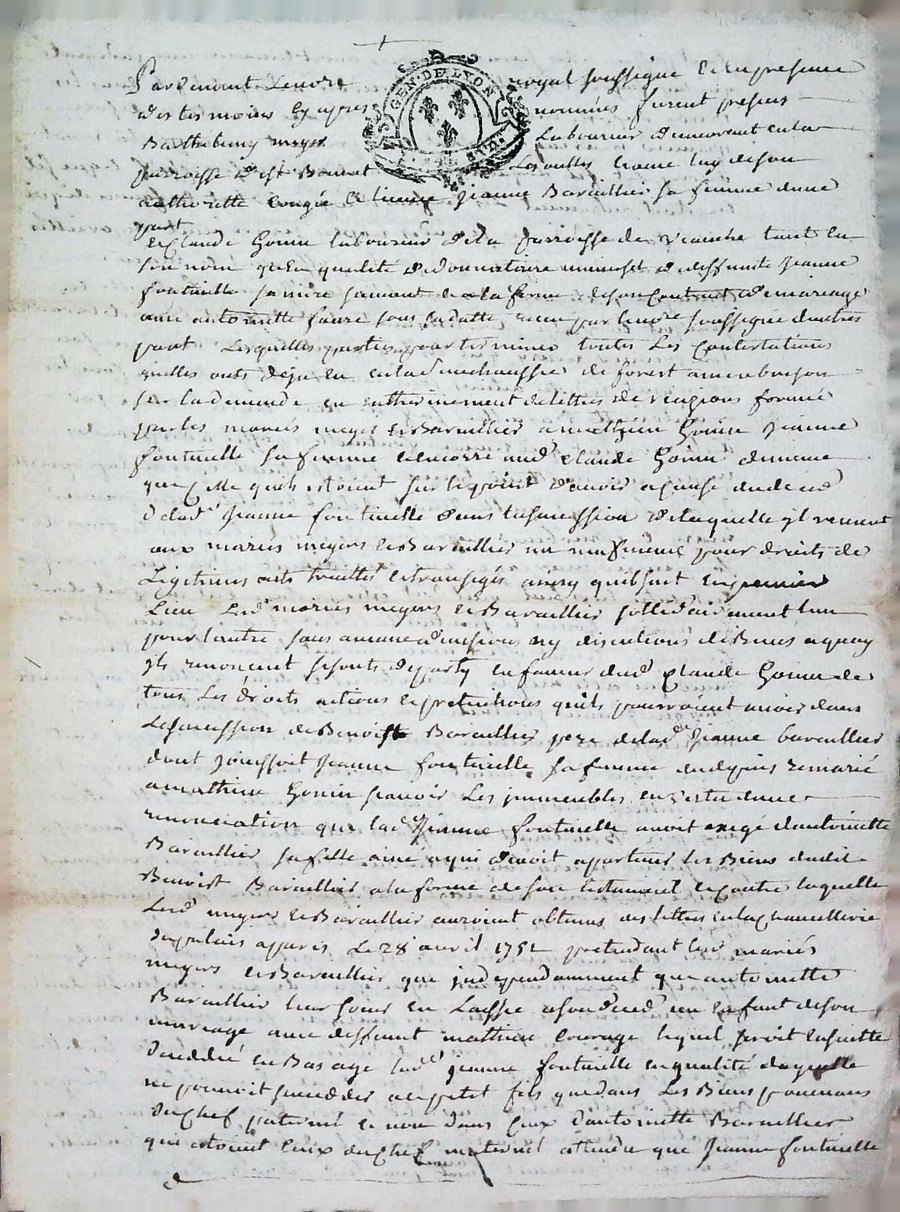 Pardevant Lenore royal soussigné et en presence
GEN · DE LYON
des temoins cy apres nommés furent presens
Barthelemy meyer Laboureur demeurant en la
parroisse de st Bonnet Les oulles comme luy de son
authorité Congée et licence Jeanne Baraillier sa femme dune
part
et Claude Gonin laboureur de la parroisse de tant en
son nom quen qualité de donnataire de deffunte Jeanne
fontinelle sa mere suivant et a la forme de son Contract de mariage
avec antoinette faure sous sa datte recu par lenore soussigné dautres
part Lesquelles parties pour terminer toutes Les Contestations
quelles onts deja eu en la senechaussée de forest a montbrison
sur la demande en entherinement de lettres de formée
par les mariés meyer et Baraillier a matthieu Gonin Jeanne
fontinelle sa femme et encorre aud Claude Gonin de meme
que Celle quils etoient sur le point davoir a cause du deced
de lad Jeanne fontinelle dans la succession de laquelle il revient
aux mariés meyers et Baraillier un pour droits de
Legitimes onts traittés et transigés ainsy quil suit En premier
Lieu Les mariés meyers et Baraillier sollidairement lun
pour lautre sans aucune division ny discutions de Biens a quoy
ils renoncent se sonts departy en faveur dud Claude Gonin de
tous Les droits actions et pretentions quils pourroient avoir dans
La succession de Benoist Baraillier pere de lad Jeanne baraillier
dont Jouissoit Jeanne fontinelle sa femme du depuis remarié
a mathieu Gonin scavoir Les immeubles en vertu dune
renonciation que lad Jeanne fontinelle avoit exigé dantoinette
Baraillier sa fille ainé a qui devoit apartenir les Biens dudit
Benoist Baraillier a la forme de son testament et contre laquelle
Led meyers et Baraillier auroient obtenus des lettres en la Chancellerie
du palais a pparis Le 28 avril 1751 pretendant les mariés
meyers et Baraillier que independamment que antoinette
Baraillier leur soeur eu Laissé a son deced un Enfant de son
mariage avec deffunt matthieu lequel seroit ensuitte
deceddé en Bas age lad Jeanne fontinelle en qualité dayeulle
ne pouvoit succeder a ce petit fils que dans Les Biens provenans
du Chef paternel et non dans Ceux dantoinette Baraillier
qui etoient Ceux du Chef maternel attendu que Jeanne fontinelle